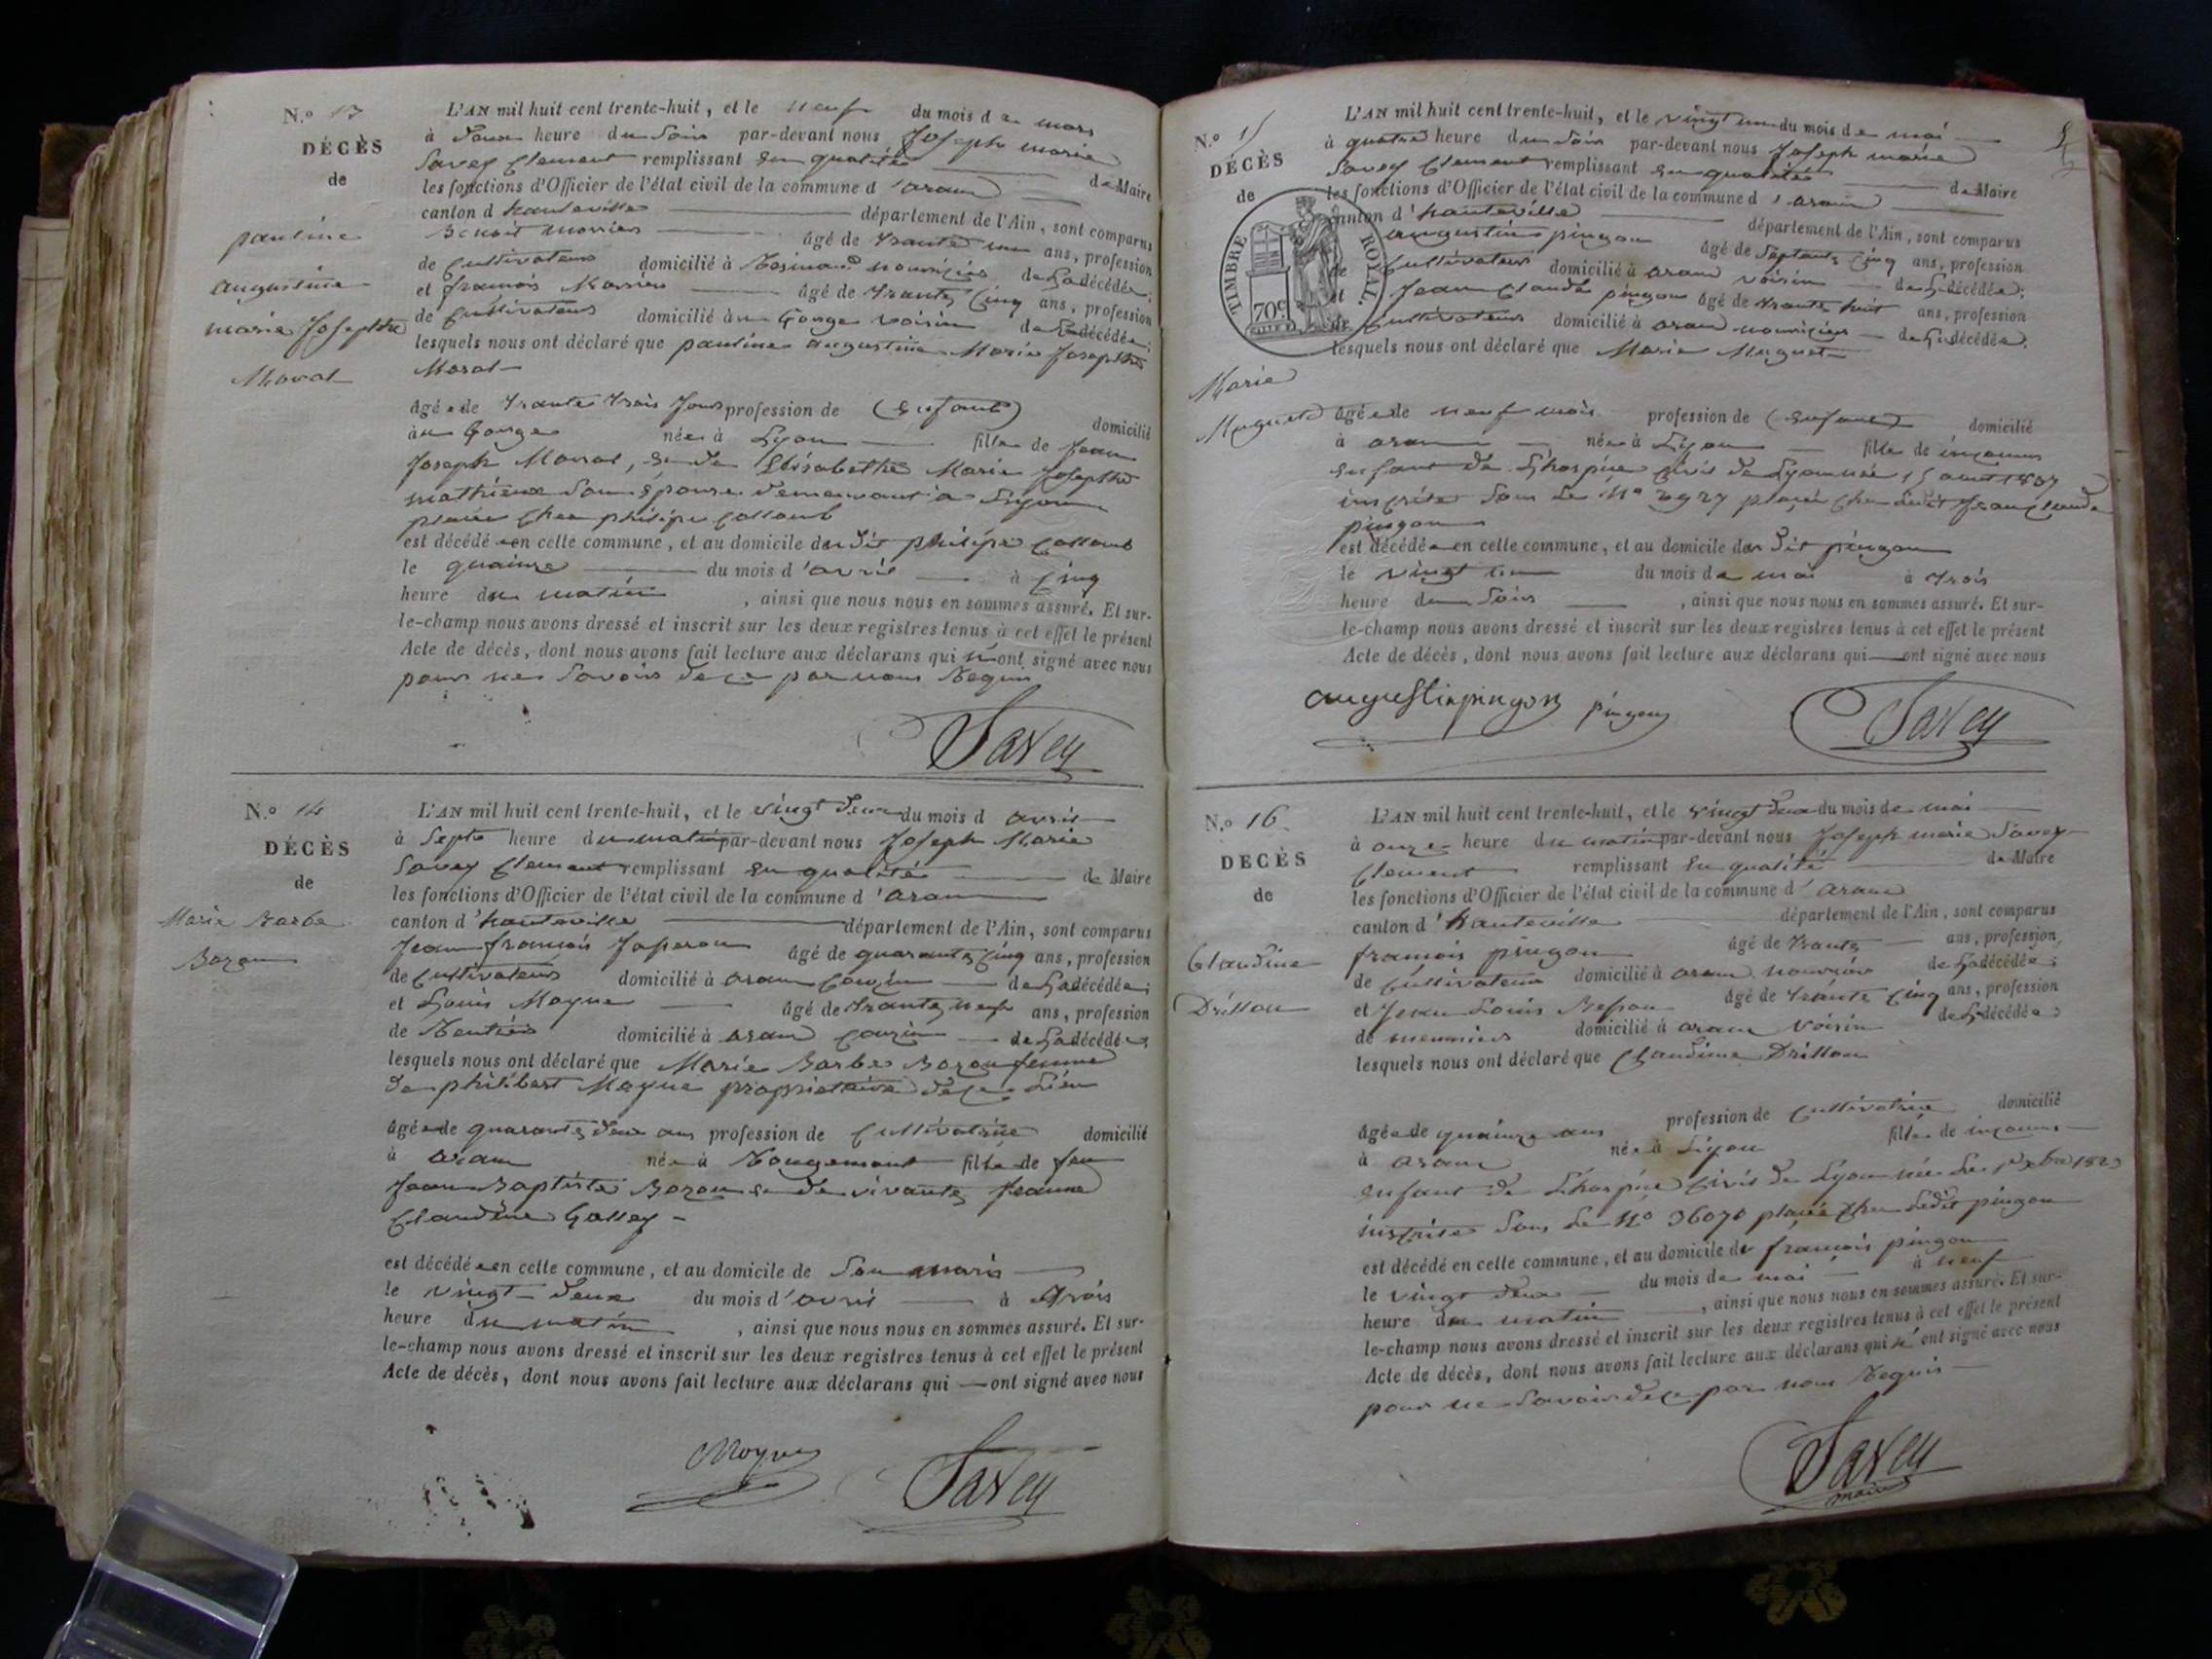 N.º 13
DÉCÈS
de
pauline
augustine
marie Josephte
Moral
L'AN mil huit cent trente-huit, et le neuf du mois de mars
à deux heure du soir par-devant nous Joseph marie
Savey Clement remplissant en qualité de Maire
les fonctions d'Officier de l'état civil de la commune d'aranc
canton d'hauteville département de l'Ain, sont comparus
Benoit âgé de trante un ans, profession
de Cultivateur domicilié à nourricier de la décédée;
et françois âgé de trante Cinq ans, profession
de Cultivateur domicilié à Gorge voisin de la décédée;
lesquels nous ont déclaré que pauline augustine Marie Josephte
Moral
âgée de trante trois jours profession de (enfant) domicilié
à Gorge née à Lyon fille de Jean
Joseph Moral, et de Elisabethe Marie Josephte
mathieux son épouse demeurant à Lyon
placée chez philipe Colland
est décédée en cette commune, et au domicile du dit philipe Colland
le quainze du mois d'avril à Cinq
heure du matin, ainsi que nous nous en sommes assuré. Et sur-
le-champ nous avons dressé et inscrit sur les deux registres tenus à cet effet le présent
Acte de décès, dont nous avons fait lecture aux déclarans qui n'ont signé avec nous
pour ne savoir de ce par nous Requis
Savey
N.º 14
DÉCÈS
de
Marie Barbe
Bozon
L'AN mil huit cent trente-huit, et le vingt deux du mois d'avril
à Septe heure du matin par-devant nous Joseph Marie
Savey Clement remplissant en qualité de Maire
les fonctions d'Officier de l'état civil de la commune d'aranc
canton d'hauteville département de l'Ain, sont comparus
Jean françois âgé de quarante Cinq ans, profession
de Cultivateur domicilié à aranc Couzin de la décédée;
et Louis Mayne âgé de trante neuf ans, profession
de Rentier domicilié à aranc Couzin de la décédée;
lesquels nous ont déclaré que Marie Barbe Bozon femme
de philibert Mayne propriétaire de ce Lieu
âgée de quarante deux ans profession de Cultivatrice domicilié
à aranc née à Rougemont fille de feu
Jean Baptiste Bozon et de vivante Jeanne
Claudine Galley
est décédée en cette commune, et au domicile de Son maris
le vingt deux du mois d'avril à trois
heure du matin, ainsi que nous nous en sommes assuré. Et sur-
le-champ nous avons dressé et inscrit sur les deux registres tenus à cet effet le présent
Acte de décès, dont nous avons fait lecture aux déclarans qui ont signé avec nous
Mayne Savey
N.º 15
DÉCÈS
de
TIMBRE ROYAL.
70c
Marie
Muguet
L'AN mil huit cent trente-huit, et le vingt un du mois de mai
à quatre heure du soir par-devant nous Joseph marie
Savey Clement remplissant en qualité de Maire
les fonctions d'Officier de l'état civil de la commune d'aranc
canton d'hauteville département de l'Ain, sont comparus
augustin pingon âgé de Septante Cinq ans, profession
de Cultivateur domicilié à aranc voisin de la décédée;
et Jean Claude pingon âgé de trante huit ans, profession
de Cultivateur domicilié à aranc nourricier de la décédée;
lesquels nous ont déclaré que Marie Muguet
âgée de neuf mois profession de (enfant) domicilié
à aranc née à Lyon fille de inconnus
enfant de L'hospice Civil de Lyon née 15 aout 1837
inscrite sous Le Nº 2927 placé chez ledit Jean Claude
pingon
est décédée en cette commune, et au domicile du dit pingon
le vingt un du mois de mai à trois
heure du Soir, ainsi que nous nous en sommes assuré. Et sur-
le-champ nous avons dressé et inscrit sur les deux registres tenus à cet effet le présent
Acte de décès, dont nous avons fait lecture aux déclarans qui ont signé avec nous
augustinpingon pingon Savey
N.º 16
DÉCÈS
de
Claudine
Drillon
L'AN mil huit cent trente-huit, et le vingt deux du mois de mai
à onze heure du matin par-devant nous Joseph marie Savey
Clement remplissant en qualité de Maire
les fonctions d'Officier de l'état civil de la commune d'aranc
canton d'hauteville département de l'Ain, sont comparus
françois pingon âgé de trante ans, profession
de Cultivateur domicilié à aranc nourricier de la décédée;
et Jean Louis âgé de trante Cinq ans, profession
de meunier domicilié à aranc voisin de la décédée;
lesquels nous ont déclaré que Claudine Drillon
âgée de quainze ans profession de Cultivatrice domicilié
à aranc née à Lyon fille de inconnus
enfant de L'hospice Civil de Lyon née Le 1er xbre 1823
inscrite sous Le Nº 36070 placée chez ledit pingon
est décédé en cette commune, et au domicile de françois pingon
le vingt deux du mois de mai à neuf
heure du matin, ainsi que nous nous en sommes assuré. Et sur-
le-champ nous avons dressé et inscrit sur les deux registres tenus à cet effet le présent
Acte de décès, dont nous avons fait lecture aux déclarans qui n'ont signé avec nous
pour ne Savoir de ce par nous Requis
Savey
maire